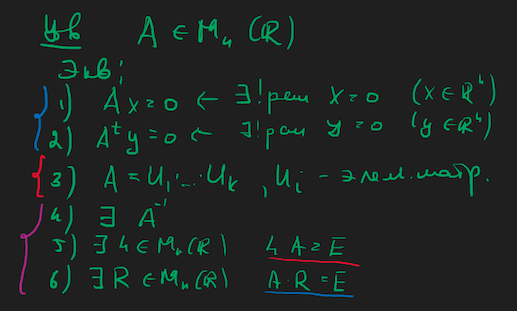 Утв A ∈ Mₙ(ℝ)
Экв:
1) Ax=0 ← ∃! реш x=0 (x∈ℝⁿ)
2) Aᵗy=0 ← ∃! реш y=0 (y∈ℝⁿ)
3) A=U₁·...·Uₖ, Uᵢ - элем. матр.
4) ∃ A⁻¹
5) ∃ L∈Mₙ(ℝ) LA=E
6) ∃ R∈Mₙ(ℝ) A·R=E